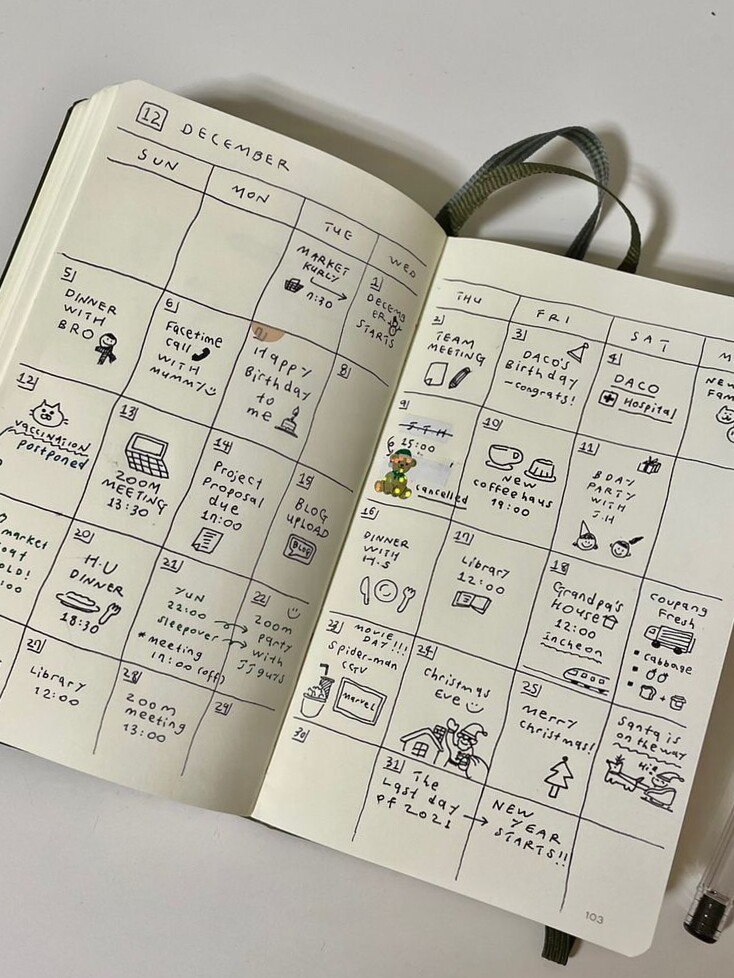 12 DECEMBER
SUN
MON
TUE
WED
MARKET
KURLY
1
DECEMB
ER
STARTS
5
DINNER
WITH
BRO
6
Facetime
call
WITH
MUMMY
7
Happy
Birthday
to
me
8
12
VACCINATION
Postponed
13
ZOOM
MEETING
13:30
14
Project
Proposal
due
17:00
15
BLOG
UPLOAD
BLOG
market
OLD!
:00
20
H.U
DINNER
18:30
21
YUN
22:00
sleepover
*meeting
17:00 (off)
22
ZOOM
party
with
JJ guys
27
Library
12:00
28
ZOOM
meeting
13:00
29
THU
FRI
SAT
M
2
TEAM
MEETING
3
DACO'S
Birthday
-congrats!
4
DACO
Hospital
NEW
FAM
9
J.T.H
15:00
cancelled
10
NEW
coffeehaus
19:00
11
BDAY
PARTY
WITH
J.H
16
DINNER
WITH
H.S
17
Library
12:00
18
Grandpa's
HOUSE
12:00
incheon
COUPANG
Fresh
cabbage
+
23
MOVIE
DAY!!!
Spider-man
CGV
Marvel
24
Christmas
Eve
25
Merry
Christmas!
Santa is
on the way
Hi!
30
31 The
Last day
of 2021
NEW
YEAR
STARTS!!
103